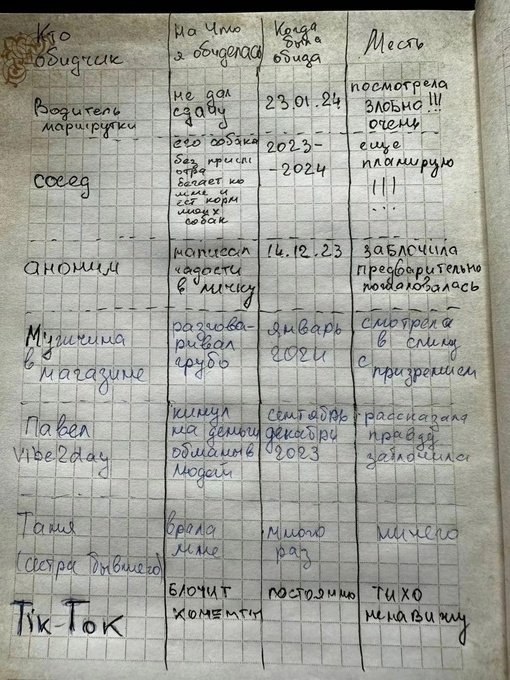 Кто обидчик
На что я обиделась
Когда была обида
Месть
Водитель маршрутки
не дал сдачу
23.01.24
посмотрела злобно!!! очень
сосед
его собака без присмотра бегает ко мне и ест корм моих собак
2023-
-2024
еще планирую
!!!
...
аноним
написал гадости в личку
14.12.23
заблочила предварительно пожаловалась
Мужчина в магазине
разговаривал грубо
январь 2024
смотрела в спину с призрением
Павел Vibe2day
кинул на деньги обманыв людей
сентябрь декабрь 2023
рассказала правду заблочила
Таня (сестра бывшего)
врала мне
много раз
ничего
Tik-Tok
блочит
постоянно
тихо ненавижу